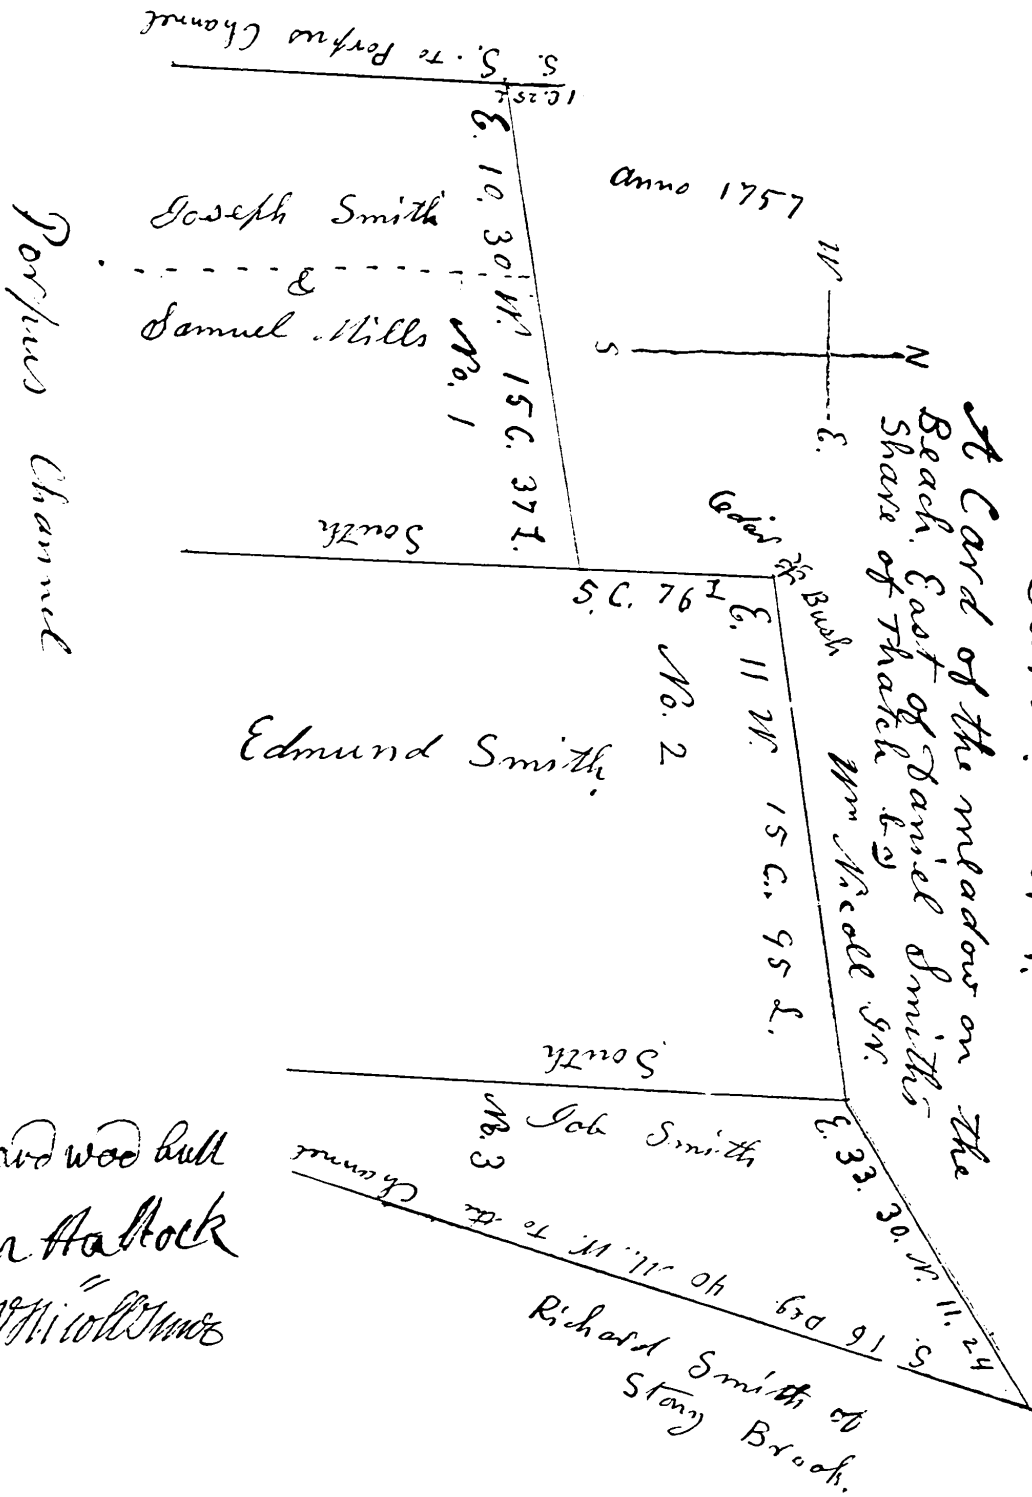 A Card of the meadow on the
Beach. East of Daniel Smiths
Share of Thatch by
Wm Nicoll Jr.
anno 1757
N
S
E.
W
S. S. to Porpus Channel
1 C. 25 L
E. 10. 30 N. 15 C. 37 L.
Joseph Smith
&
Samuel Mills
No. 1
Porpus Channel
South
5 C. 76 L
Cedar
Bush
E. 11 N. 15 C. 95 L.
No. 2
Edmund Smith.
South
Job Smith
No. 3
E. 33. 30. N. 11. 24
S. 16 Deg 40 M. W. to the Channel
Richard Smith of
Stony Brook.
hull
Hallock